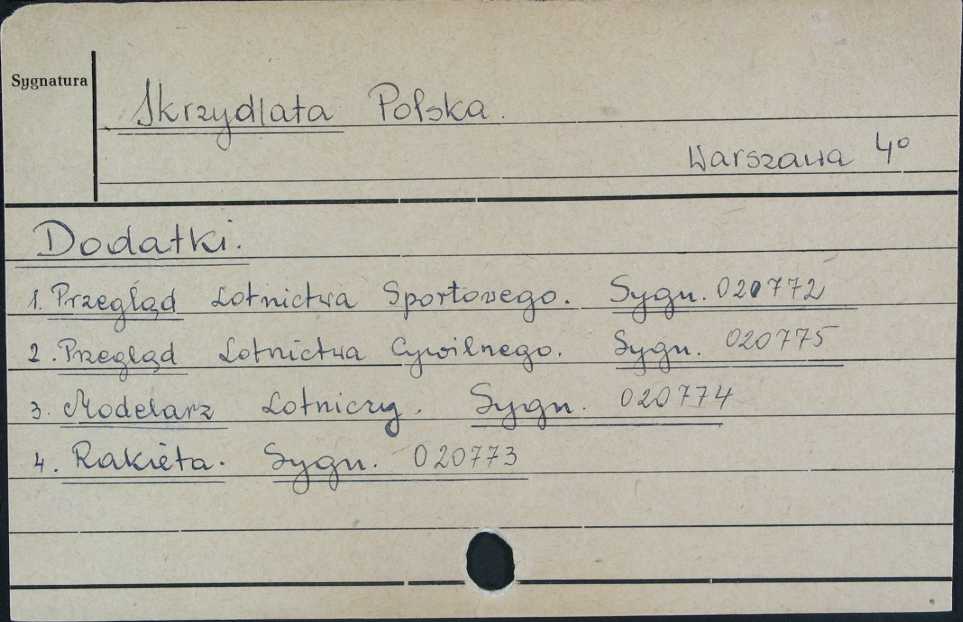 Sygnatura
Skrzydlata Polska.
Warszawa 4°
Dodatki.
1. Przegląd Lotnictwa Sportowego. Sygn. 020772
2. Przegląd Lotnictwa Cywilnego. Sygn. 020775
3. Modelarz Lotniczy. Sygn. 020774
4. Rakieta. Sygn. 020773